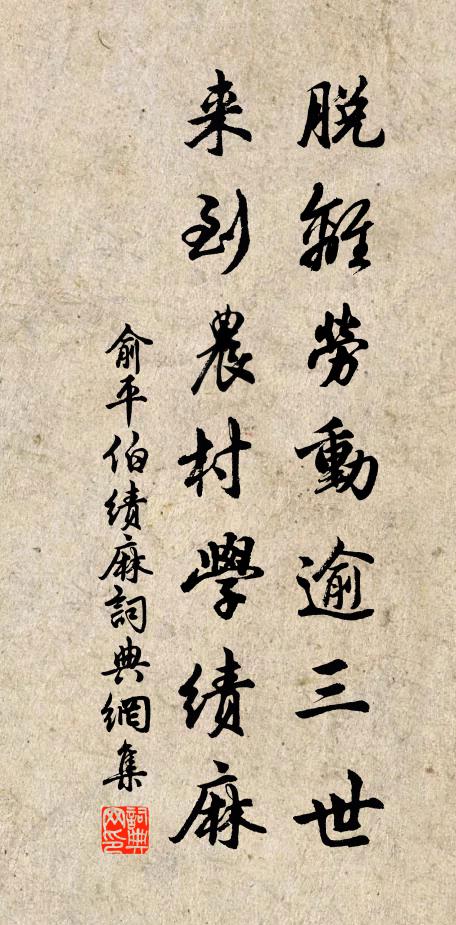 脱離勞動逾三世
来到農村學績麻
俞平伯績麻詞典網集
詞典網印